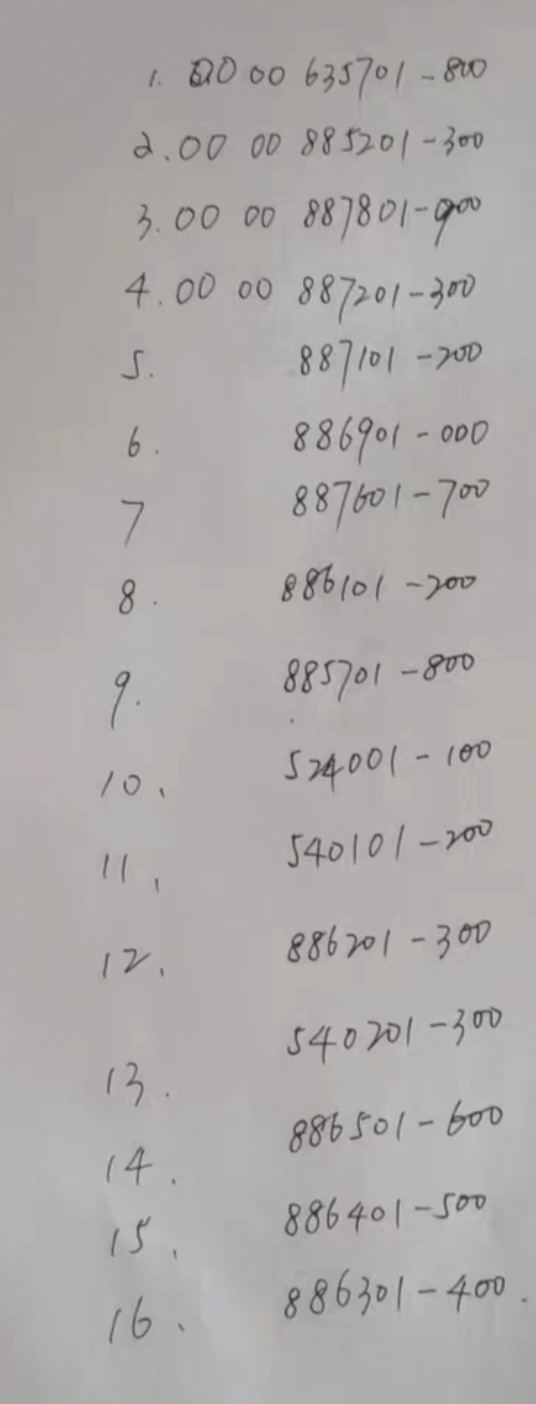 1. 00 00 635701-800
2. 00 00 885201-300
3. 00 00 887801-900
4. 00 00 887201-300
5. 887101-200
6. 886901-000
7 887601-700
8. 886101-200
9. 885701-800
10. 524001-100
11. 540101-200
12. 886201-300
13. 540201-300
14. 886501-600
15. 886401-500
16. 886301-400.